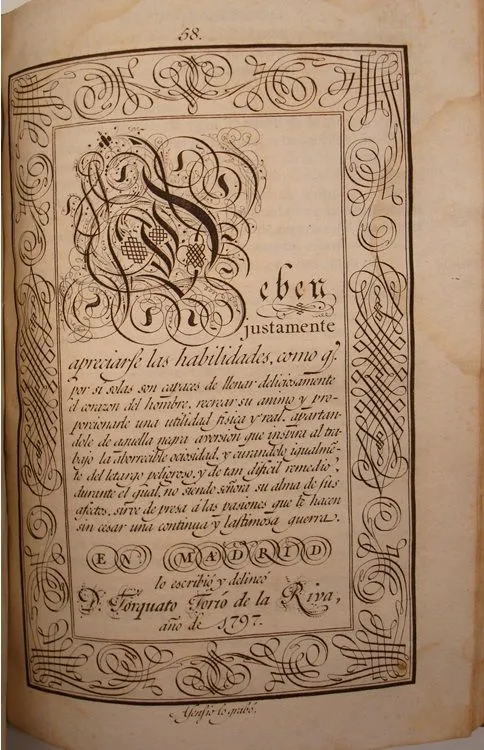 58.
Deben
justamente
apreciarse las habilidades, como q.
por si solas son capaces de llenar deliciosamente
el corazon del hombre, recrear su animo y pro-
porcionarle una utilidad fisica y real, apartan-
dole de aquella negra aversion que inspira al tra-
bajo la aborrecible ociosidad, y curandolo igualmẽ-
te del letargo peligroso, y de tan dificil remedio,
durante el qual, no siendo señora su alma de sus
afectos, sirve de presa á las pasiones que le hacen
sin cesar una continua y lastimosa guerra.
EN MADRID
lo escribió y delineó
D. Torquato Torío de la Riva,
año de 1797.
Asensio lo grabó.